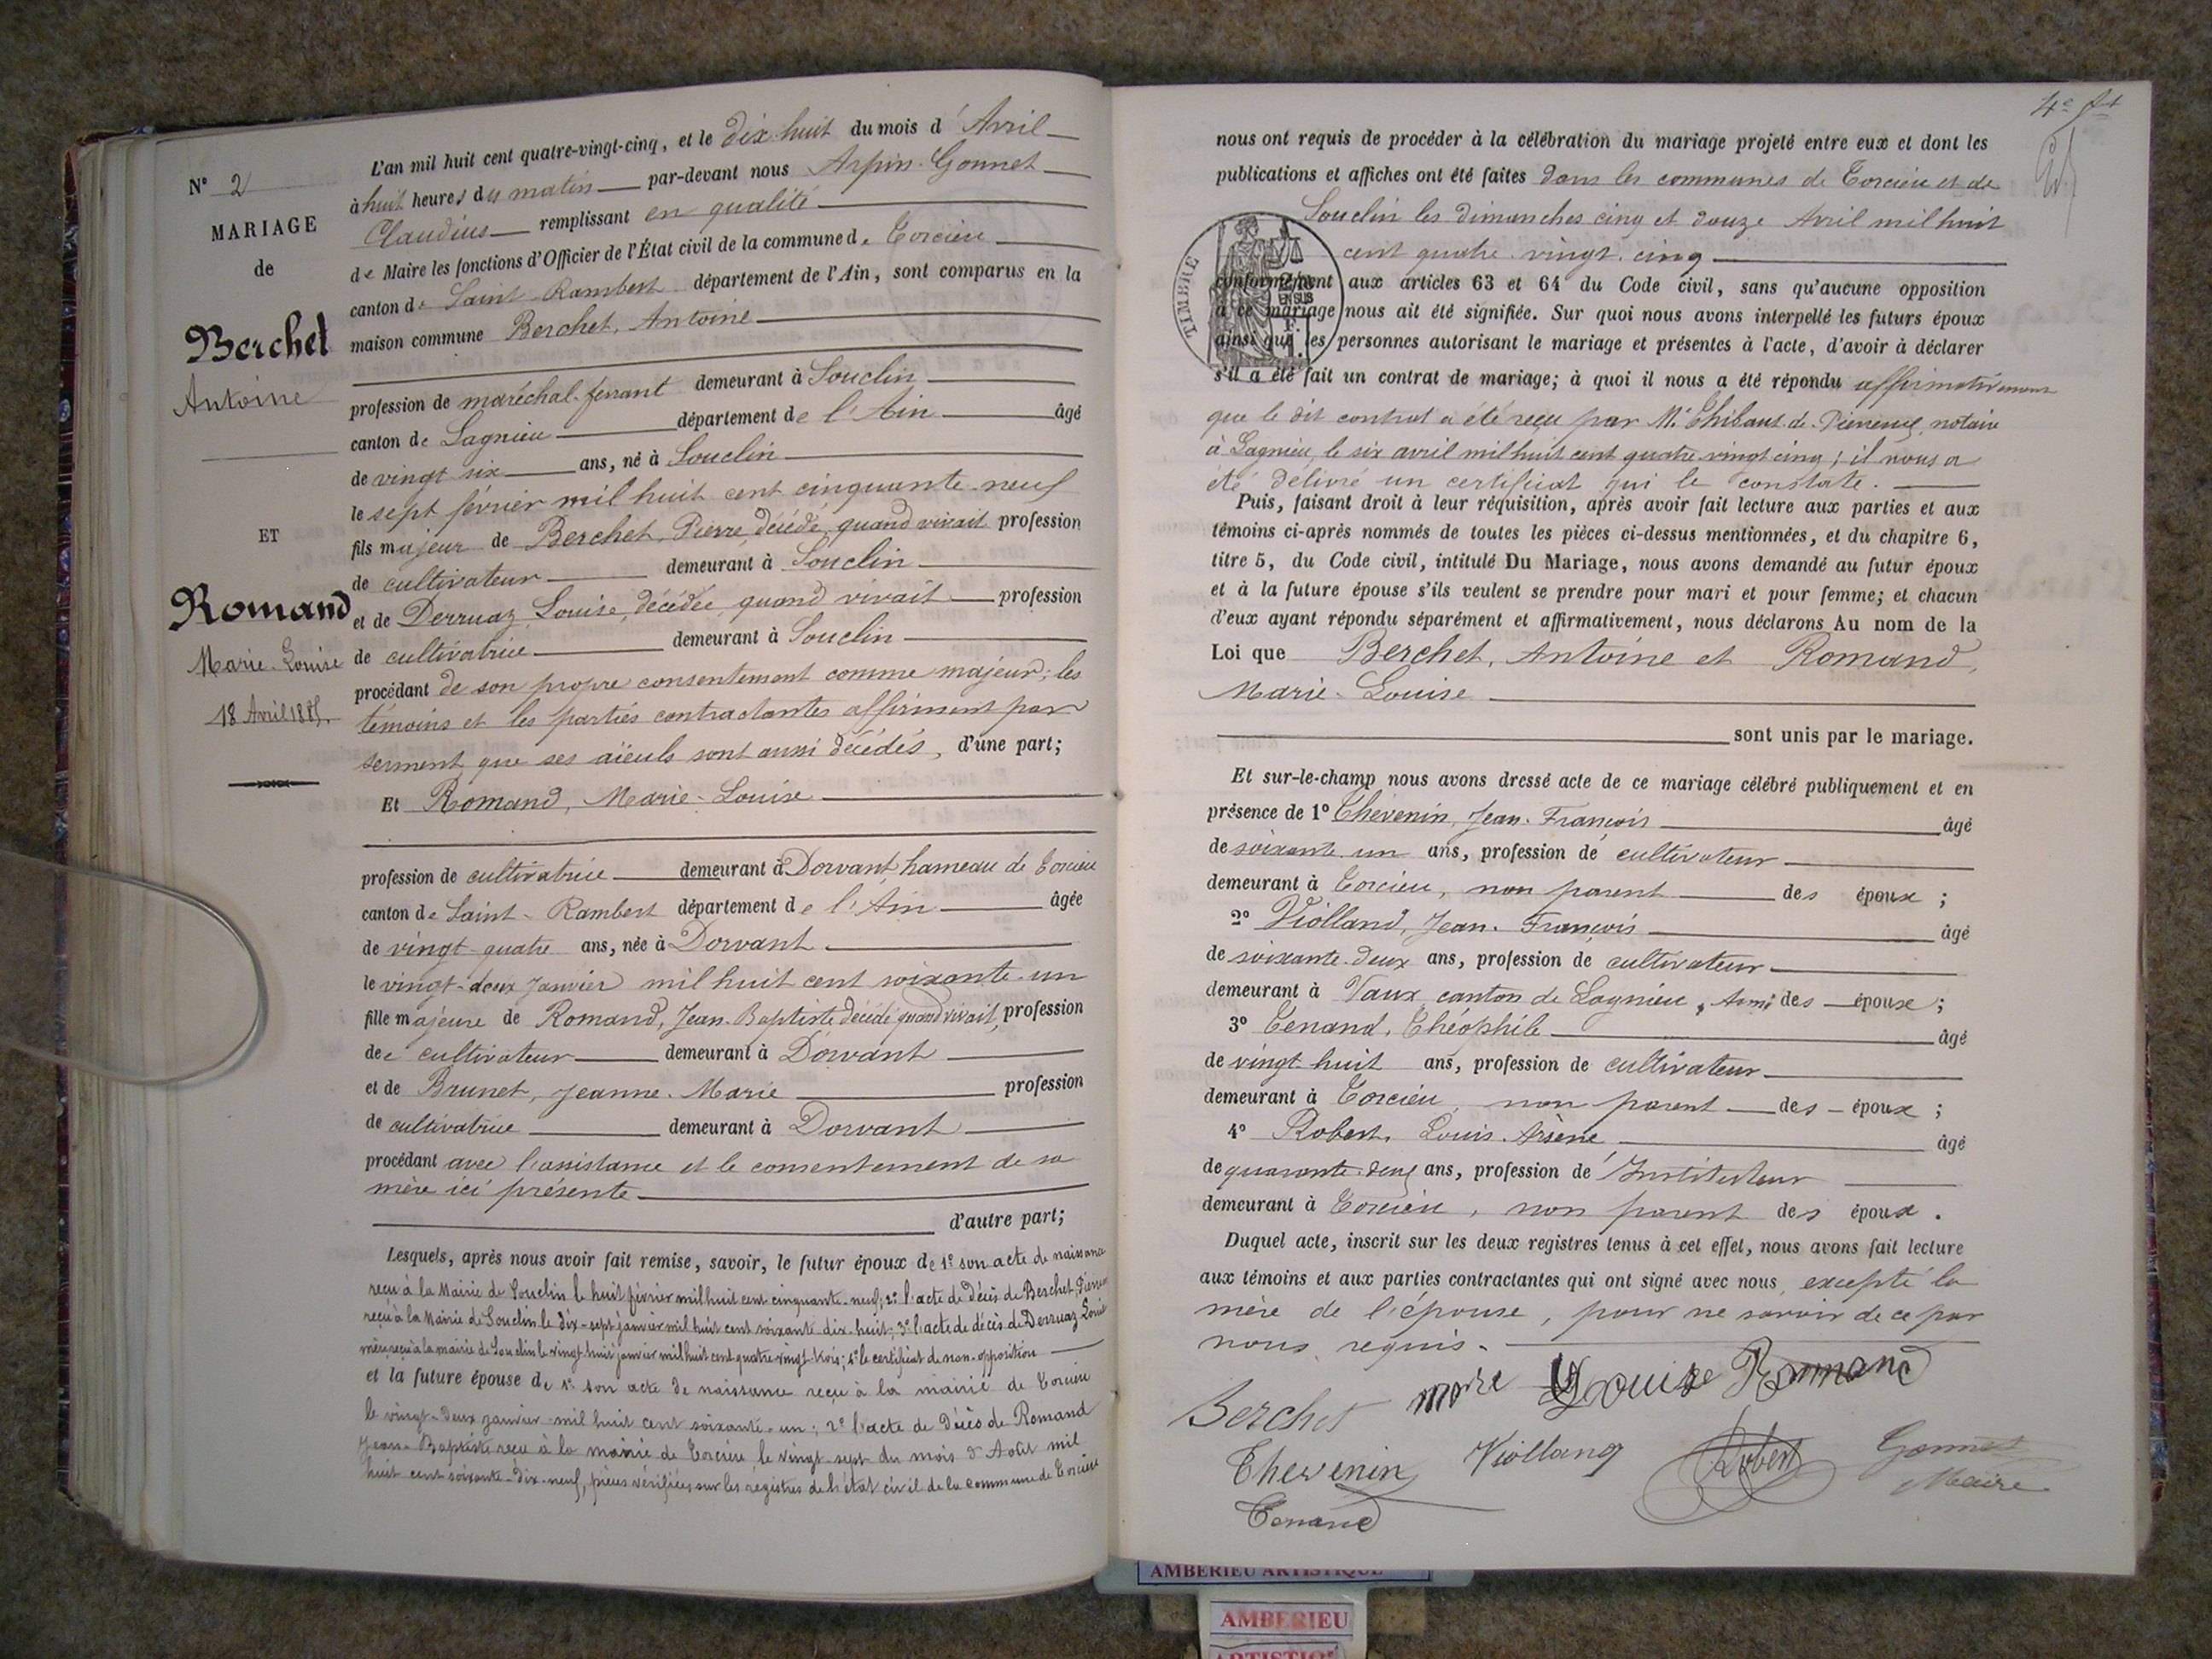 N° 2
MARIAGE
de
Berchet
Antoine
ET
Romand
Marie-Louise
18 Avril 1885.
L'an mil huit cent quatre-vingt-cinq, et le dix huit du mois d'Avril
à huit heures du matin par-devant nous Arpin-Gonnet
Claudius remplissant en qualité
de Maire les fonctions d'Officier de l'État civil de la commune de Torcieu
canton de Saint-Rambert département de l'Ain, sont comparus en la
maison commune Berchet, Antoine
profession de maréchal-ferrant demeurant à Souclin
canton de Lagnieu département de l'Ain âgé
de vingt six ans, né à Souclin
le sept février mil huit cent cinquante-neuf
fils majeur de Berchet, Pierre, décédé, quand vivait profession
de cultivateur demeurant à Souclin
et de Derruaz, Louise, décédée, quand vivait profession
de cultivatrice demeurant à Souclin
procédant de son propre consentement comme majeur; les
témoins et les parties contractantes affirment par
serment que ses aïeuls sont aussi décédés, d'une part;
Et Romand, Marie-Louise
profession de cultivatrice demeurant à Dorvant, hameau de Torcieu
canton de Saint-Rambert département de l'Ain âgée
de vingt-quatre ans, née à Dorvant
le vingt-deux Janvier mil huit cent soixante-un
fille majeure de Romand, Jean-Baptiste décédé quand vivait, profession
de cultivateur demeurant à Dorvant
et de Brunet, Jeanne-Marie profession
de cultivatrice demeurant à Dorvant
procédant avec l'assistance et le consentement de sa
mère ici présente
d'autre part;
Lesquels, après nous avoir fait remise, savoir, le futur époux de 1° son acte de naissance
reçu à la Mairie de Souclin le huit février mil huit cent cinquante-neuf; 2° l'acte de décès de Berchet, Pierre
reçu à la Mairie de Souclin le dix-sept janvier mil huit cent soixante-dix-huit; 3° l'acte de décès de Derruaz Louise
mère, reçu à la mairie de Souclin le vingt-huit janvier mil huit cent quatre vingt-trois; 4° le certificat de non-opposition
et la future épouse de 1° son acte de naissance reçu à la mairie de Torcieu
le vingt-deux janvier mil huit cent soixante-un; 2° l'acte de décès de Romand
Jean-Baptiste reçu à la mairie de Torcieu le vingt-sept du mois d'Août mil
huit cent soixante-dix-neuf, pièces vérifiées sur les registres de l'état civil de la commune de Torcieu
4e ft
nous ont requis de procéder à la célébration du mariage projeté entre eux et dont les
publications et affiches ont été faites dans les communes de Torcieu et de
Souclin les dimanches cinq et douze Avril mil huit
cent quatre-vingt-cinq
TIMBRE
conformément aux articles 63 et 64 du Code civil, sans qu'aucune opposition
à ce mariage nous ait été signifiée. Sur quoi nous avons interpellé les futurs époux
ainsi que les personnes autorisant le mariage et présentes à l'acte, d'avoir à déclarer
s'il a été fait un contrat de mariage; à quoi il nous a été répondu affirmativement
que le dit contrat a été reçu par Me Thibaut de notaire
à Lagnieu, le six avril mil huit cent quatre vingt cinq; il nous a
été délivré un certificat qui le constate.
Puis, faisant droit à leur réquisition, après avoir fait lecture aux parties et aux
témoins ci-après nommés de toutes les pièces ci-dessus mentionnées, et du chapitre 6,
titre 5, du Code civil, intitulé Du Mariage, nous avons demandé au futur époux
et à la future épouse s'ils veulent se prendre pour mari et pour femme; et chacun
d'eux ayant répondu séparément et affirmativement, nous déclarons Au nom de la
Loi que Berchet, Antoine et Romand,
Marie-Louise
sont unis par le mariage.
Et sur-le-champ nous avons dressé acte de ce mariage célébré publiquement et en
présence de 1° Thévenin, Jean-François âgé
de soixante-un ans, profession de cultivateur
demeurant à Torcieu, non parent des époux;
2° Violland, Jean-François âgé
de soixante-deux ans, profession de cultivateur
demeurant à Vaux, canton de Lagnieu, Ami des époux;
3° Tenand, Théophile âgé
de vingt-huit ans, profession de cultivateur
demeurant à Torcieu, non parent des époux;
4° Robert, Louis-Arsène, âgé
de quarante-deux ans, profession de Instituteur
demeurant à Torcieu, non parent des époux.
Duquel acte, inscrit sur les deux registres tenus à cet effet, nous avons fait lecture
aux témoins et aux parties contractantes qui ont signé avec nous excepté la
mère de l'épouse, pour ne savoir de ce par
nous requis.
Berchet Louise Romand
Thevenin Violland Robert Gonnet
Maire
Tenand
AMBERIEU ARTISTIQUE
AMBERIEU